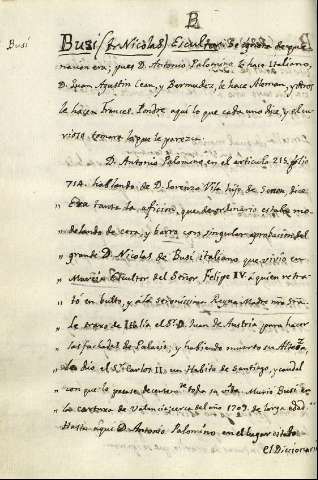 B
Busi
Busi (Dn Nicolas) Escultor. Se ignora de que
nacion era; pues D. Antonio Palomino le hace Italiano,
D. Juan Agustin Cean, y Bermudez, le hace Aleman, y otros
le hacen Frances. Pondre aquí lo que cada uno dice, y el cu-
rioso tomara lo que le parezca.
D. Antonio Palomino, en el articulo 215, folio
714. hablando de D. Lorenzo Vila hijo de Senen, dice
Era tanta la aficion, que de ordinario estaba mo-
„ delando de cera, y barro con singular aprobacion del
„ grande D. Nicolas de Busi italiano que vivio en
„ Murcia Escultor del Señor Felipe IV. á quien retra-
„ tó en bulto, y á la serenisima Reyna Madre nra Sra.
„ Le traxo de Italia el Sr. D. Juan de Austria para hacer
„ las fachadas de Palacio; y habiendo muerto su Alteza,
„ le dio el Sr. Carlos II. un Habito de Santiago, y caudal
„ con que lo pasase decentemte toda su vida. Murio Busi en
„ la cartuxa de Valencia cerca del año 1709. de larga edad.
Hasta aqui D. Antonio Palomino en el lugar citado
el Diccionario